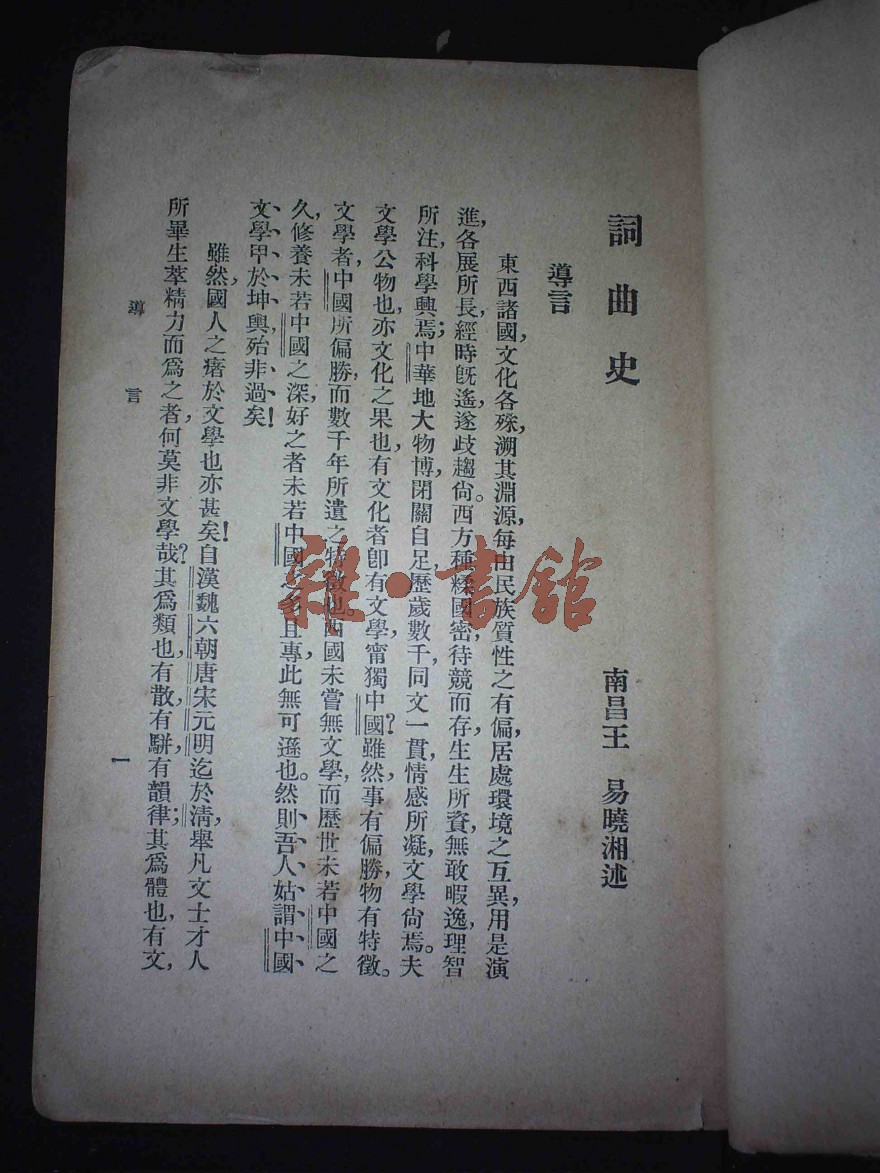 詞曲史
南昌王 易曉湘述
導言
東西諸國，文化各殊，溯其淵源，每由民族質性之有偏，居處環境之互異，用是演
進，各展所長，經時旣遙，遂歧趨尙。西方種糅國密，待競而存，生生所資，無敢暇逸，理智
所注，科學興焉；中華地大物博，閉關自足，歷歲數千，同文一貫，情感所凝，文學尙焉。夫
文學公物也，亦文化之果也，有文化者卽有文學，甯獨中國？雖然，事有偏勝，物有特徵。
文學者，中國所偏勝，而數千年所遺之特徵也。西國未嘗無文學，而歷世未若中國之
久，修養未若中國之深，好之者未若中國之多且專，此無可遜也。然則吾人姑謂中國
文學甲於坤輿，殆非過矣！
雖然，國人之瘏於文學也亦甚矣！自漢魏六朝唐宋元明迄於淸，舉凡文士才人
所畢生萃精力而爲之者，何莫非文學哉？其爲類也，有散，有駢，有韻律；其爲體也，有文，
導言
一
雜·書館